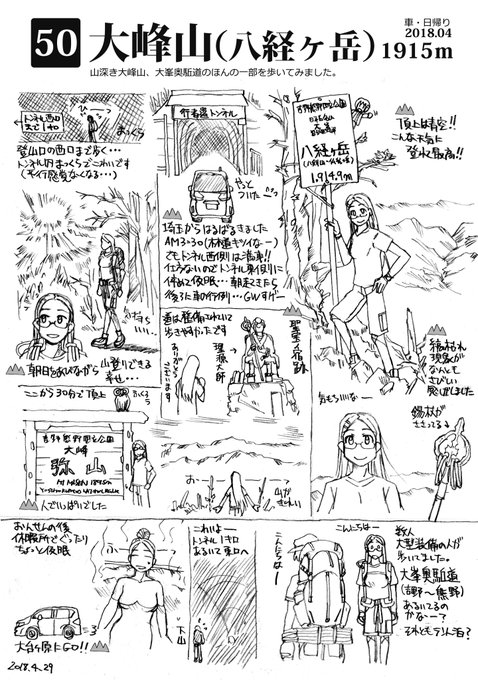 50
大峰山(八経ヶ岳)1915m
車・日帰り
2018.04
山深き大峰山、大峯奥駈道のほんの一部を歩いてみました。
トンネル西口
まで1キロ
まっくら
登山口の西口まで歩く…
トンネル内まっくらでこわいです
(平行感覚なくなる…)
行者還トンネル
やっと
ついた
埼玉からはるばるきました
AM3:30(林道キツイなー)
でもトンネル西側は満車!!
仕方ないのでトンネル東側に
停めて仮眠…朝起きたら
後ろに車の行列…GWすげー
吉野熊野国立公園
八経ヶ岳
1,914.9m
頂上は青空!!
こんな天気に
登れて最高!!
朝日をあびながら
山登りできる
幸せ…
道は整備されていて
歩きやすかったです
ありがとう
ございます
理源大師
聖宝ノ宿跡
立ち枯れ
現象が
なんとも
さびしい
感じがしました
ここから30分で頂上
吉野熊野国立公園
大峰
弥山
人でいっぱいでした
おーー
山が
きれい
きもちいいなー
錫杖が
ささってる
おんせんの後
休憩所でぐったり
ちょっと仮眠
ふー
大台ヶ原にGO!!
2018.4.29
これよー
トンネル1キロ
あるいて東口へ
下山
こんにちはー
こんにちはー
数人
大型装備の人が
歩いてました。
大峯奥駈道
(吉野〜熊野)
あるいてるの
かなー?
それともテント泊?